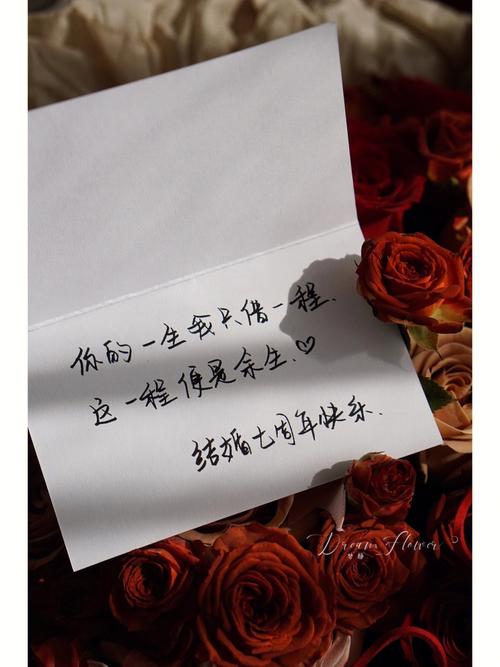 你的一生我只借一程.
这一程便是余生.♡
结婚七周年快乐.
Dream flower